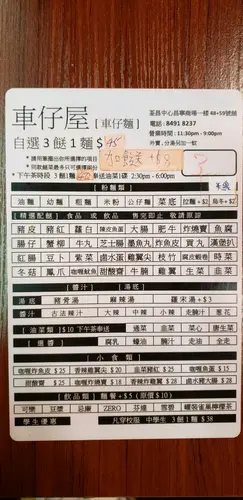 車仔屋 [車仔麵]
茶昌中心昌寧商場一樓48+59號舖
電話: 8491 8237
營業時間: 11:30pm - 9:00pm
外賣, 分湯另加一蚊
自選3餸1麵 $45
加餸+$8
* 請用筆圈出你所選擇的項目
* 同款餸菜最多只可揀選兩份
* 下午茶時段 3餸1麵 送油菜1碟 2:30pm - 6:00pm
[粉麵類]
油麵 幼麵 粗麵 米粉 公仔麵 菜底 拉麵+$2 烏冬+$2
[精選配餸] 食品 或 飲品 售完即止 敬請原諒
豬皮 豬紅 蘿白 辣皮魚蛋 大腸 肥牛 炸燒賣 魚腐
腸仔 蟹柳 牛丸 芝士腸 墨魚丸 炸魚皮 貢丸 滿堡扒
紅腸 豆卜 紫菜 鹵水蛋 雞翼尖 枝竹 腐皮蝦卷 時菜
冬菇 鳳爪 咖喱魷魚 甜酸齋 牛腩 雞翼 生菜 韭菜
[醬汁] [湯底]
湯底 豬骨湯 麻辣湯 羅宋湯+$3
醬汁 古法辣汁 大辣 中辣 小辣 走腩汁 蔥花
[油菜類] $10 下午茶奉送 通菜 韭菜 菜心 唐生菜
[選醬] 腐乳 蠔油 腩汁 走油 全走
[小食類]
咖喱炸魚皮 $25 香辣雞翼尖 $20 韭菜豬紅 $25 咖喱魚蛋 $15
甜酸齋 $25 咖喱炸燒賣 $18 香辣炸雞翼 $28 鹵水豬大腸 $28
[飲品類] 麵餐+$5 (原價$10)
可樂 豆漿 忌廉 ZERO 芬達 雪碧 罐裝雀巢檸檬茶
學生優惠 凡穿校服 中學生 3餸1麵 $38